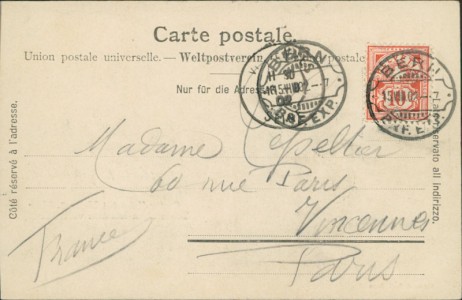 Carte postale.
Union postale universelle. — Weltpostverein postale
Nur für die Adresse
Côté réservé à l'adresse.
BERN
BRF. EXP.
BERN
BRF. EXP.
10
Madame Lepeltier
60 rue Paris
Vincennes
Paris
France
Lato riservato all indirizzo.